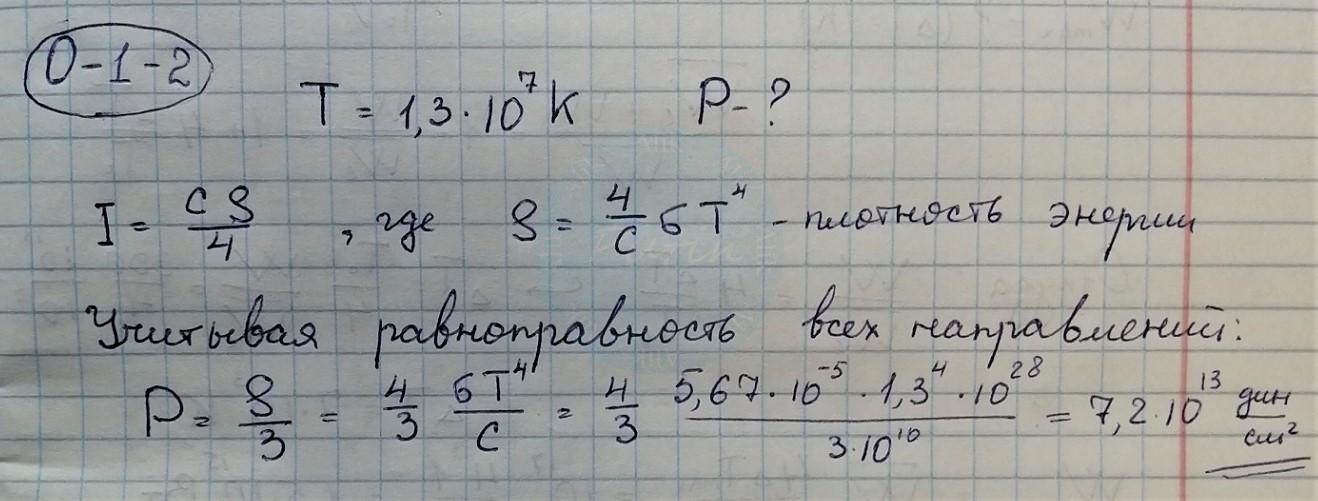 0-1-2
T = 1,3·10⁷ K P - ?
I = cρ/4, где ρ = 4/c σT⁴ - плотность энергии
Учитывая равноправность всех направлений:
P = ρ/3 = 4/3 σT⁴/c = 4/3 5,67·10⁻⁵·1,3⁴·10²⁸/3·10¹⁰ = 7,2·10¹³ дин/см²